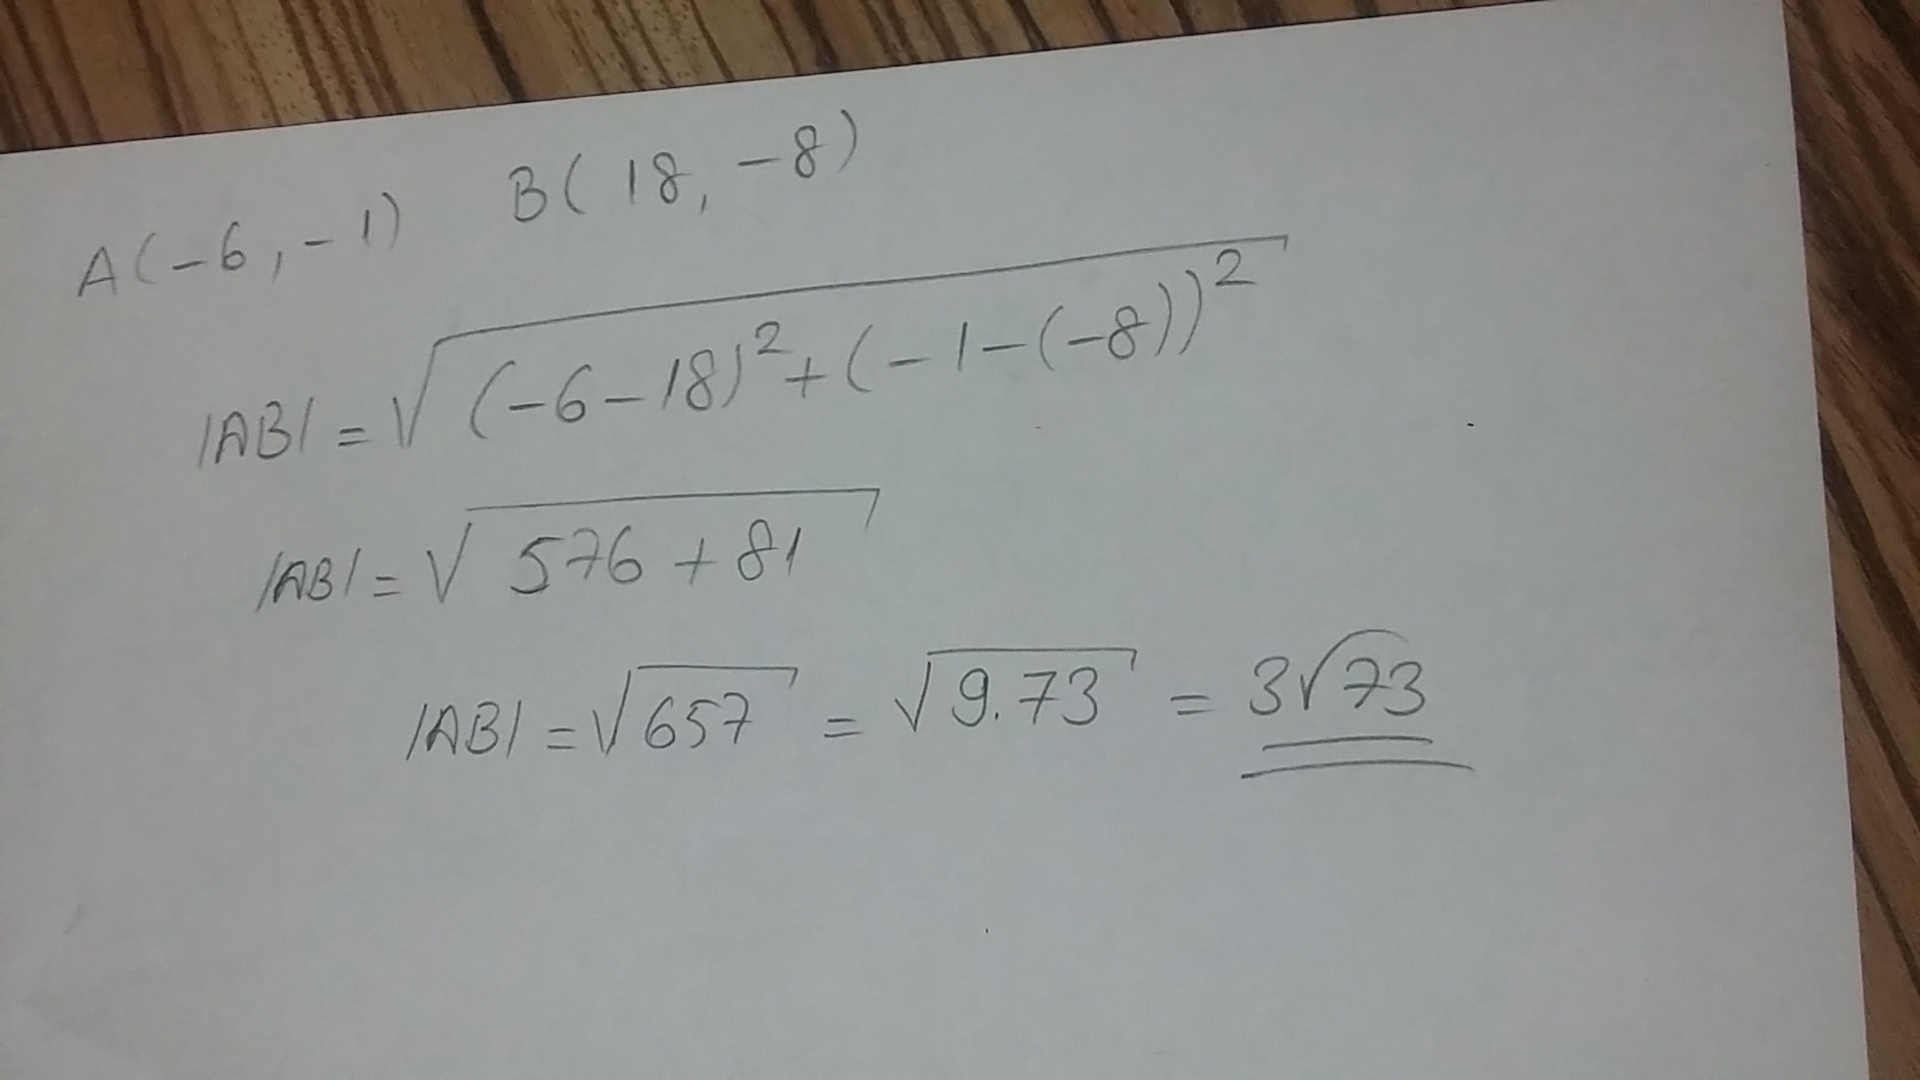 A(-6, -1) B(18, -8)
|AB| = √(-6-18)²+(-1-(-8))²
|AB| = √576+81
|AB| = √657 = √9.73 = 3√73